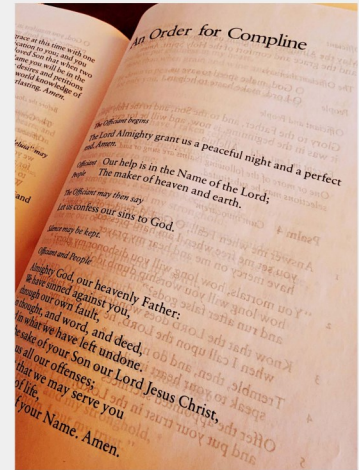 grace at this time with one
cation to you; and you
loved Son that when two
ame you will be in the
desires and petitions
world knowledge of
rlasting. Amen.
and
An Order for Compline
The Officiant begins
The Lord Almighty grant us a peaceful night and a perfect
end. Amen.
Officiant Our help is in the Name of the Lord;
People The maker of heaven and earth.
The Officiant may then say
Let us confess our sins to God.
Silence may be kept.
Officiant and People
Almighty God, our heavenly Father:
We have sinned against you,
through our own fault,
thought, and word, and deed,
d in what we have left undone.
sake of your Son our Lord Jesus Christ,
us all our offenses;
that we may serve you
of life,
f your Name. Amen.